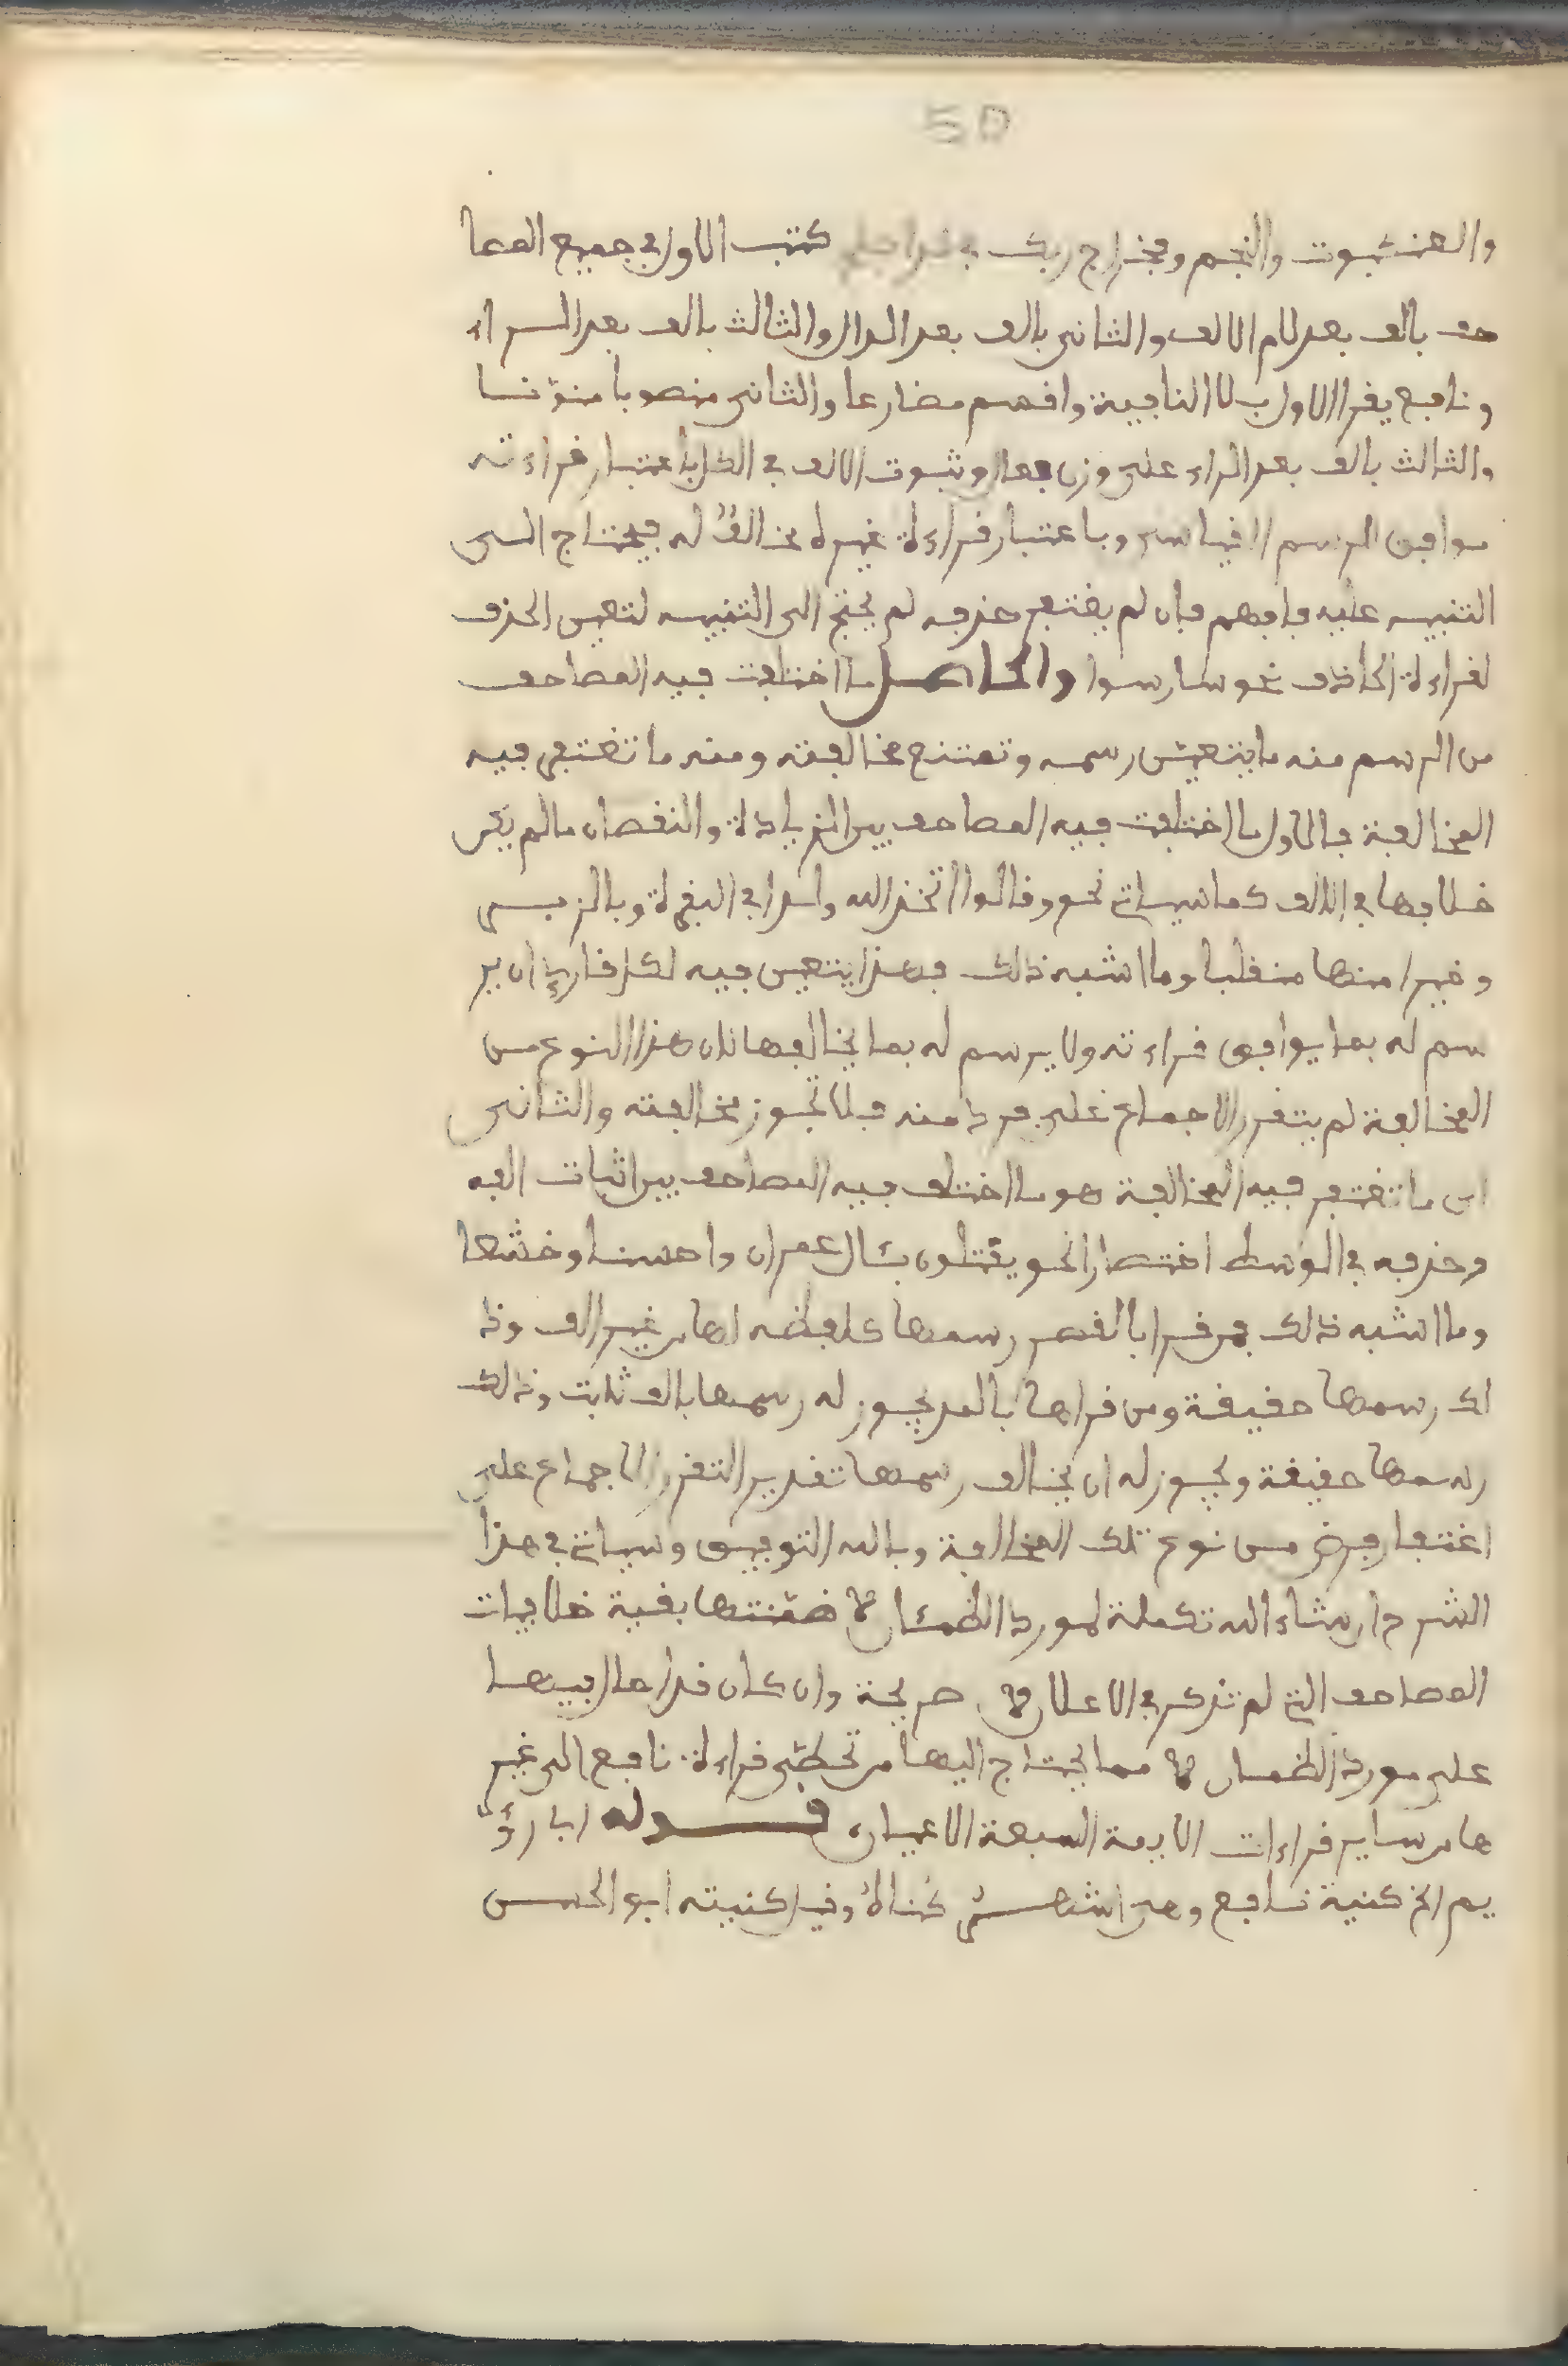 50
والعنكبوت والنجم وفخراج ربك في قد افلح كتب الاول في جميع المصا
حف بالف بعد لام الالف والثاني بالف بعد الدال والثالث بالف بعد الراء
ونافع يقرا الاول بلا النافية واقسم مضارعا والثاني منصوبا منونا
والثالث بالف بعد الراء على وزن فعال وثبوت الالف في الكل باعتبار قراءته
موافق الرسم القياسي وباعتبار قراءة غيره مخالف له فيحتاج الى
التنبيه عليه فافهم فان لم يغتفر حذفه لم يحتج الى التنبيه لتعين الحذف
لقراءة الحاذف نحو سارعوا والحاصل ما اختلفت فيه المصاحف
من الرسم منه ما يتعين رسمه وتمتنع مخالفته ومنه ما تغتفر فيه
المخالفة فالاول ما اختلفت فيه المصاحف بين الزيادة والنقصان ما لم يكن
خلافها في الالف كما سياتي نحو وقالوا اتخذ الله ولدا في البقرة وبالزبر
وخيرا منها منقلبا وما اشبه ذلك فهذا يتعين فيه لكل قارئ ان ير
سم له بما يوافق قراءته ولا يرسم له بما يخالفها لان هذا النوع من
المخالفة لم يتقرر الاجماع على فرد منه فلا تجوز مخالفته والثاني
اي ما تغتفر فيه المخالفة هو ما اختلف فيه المصاحف بين اثبات الفه
وحذفه في الوسط اختصارا نحو يقتلون بئال عمران واحسنا وخشعا
وما اشبه ذلك فمن قرا بالقصر رسمها كلفظه لها من غير الف وذا
لك رسمها حقيقة ومن قراها بالمد يجوز له رسمها بالف ثابت وذلك
رسمها حقيقة ويجوز له ان يخالف رسمها تقديرا لتقرر الاجماع على
اغتفار فرد من نوع تلك المخالفة وبالله التوفيق وسياتي في هذا
الشرح ان شاء الله تكملة لمورد الظمئان ضمنتها بقية خلافيات
المصاحف التي لم تذكر في الاعلان صريحة وان كان قد احال فيها
على مورد الظمان مما يحتاج اليها من تخطى قراءة نافع الى غير
ها من ساير قراءات الايمة السبعة الاعيان قوله ابا رؤ
يم الخ كنية نافع وهي اشهر كناه وقيل كنيته ابو الحسن